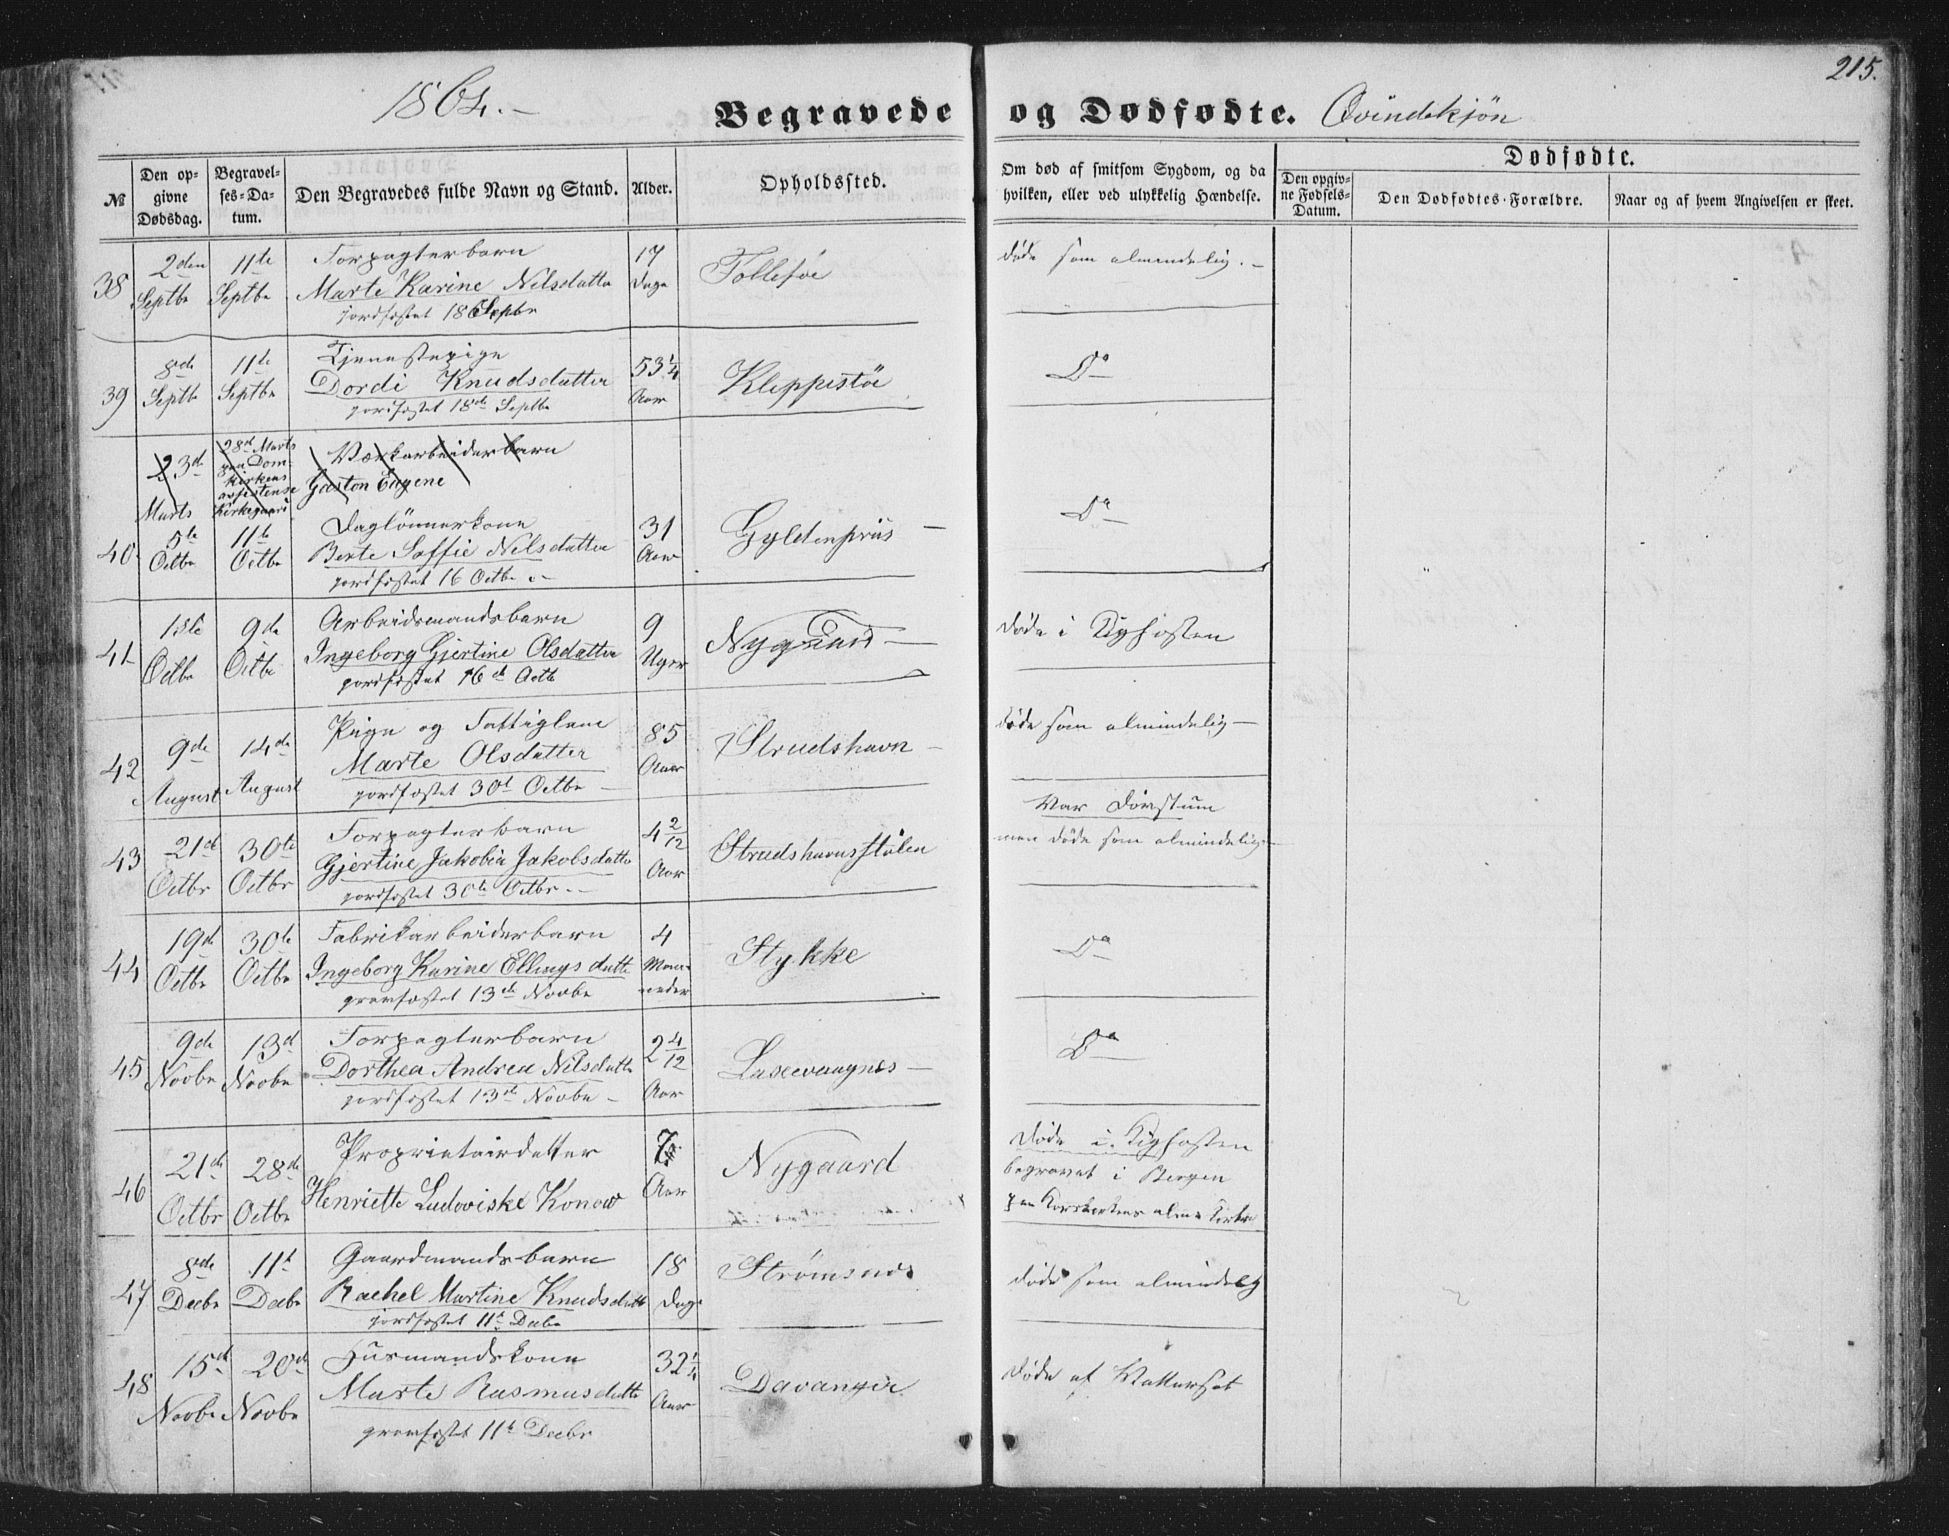 215.
1864.-
Begravede og Dødfødte. Qvindekjøn
№
Den opgivne Dødsdag.
Begravelses-Datum.
Den Begravedes fulde Navn og Stand.
Alder.
Opholdssted.
Om død af smitsom Sygdom, og da hvilken, eller ved ulykkelig Hændelse.
Dødfødte.
Den opgivne Fødsels-Datum.
Den Dødfødtes Forældre.
Naar og af hvem Angivelsen er skeet.
38
2den Septbr
11te Septbr
Forpagterbarn
Marte Karine Nilsdatter
jordfæstet 18 Septbr
17 Dage
Follesøe
døde som almindelig.-
39
8de Septbr
11te Septbr
Tjenestepige
Dordi Knudsdatter
jordfæstet 18de Septbr
53 1/4 Aar
Kleppestøe
Do
23de Marts
28de Marts paa Domkirkens kirkegaard
Værkarbeiderbarn
Gaston Eugene
40
5te Octbr
11te Octbr
Daglønnerkone
Berte Soffie Nilsdatter
jordfæstet 16 Octbr.-
31 Aar
Gyldenpriis -
Do
41
1ste Octbr
9de Octbr
Arbeidsmandsbarn
Ingeborg Gjertine Olsdatter
jordfæstet 16de Octb
9 Uger
Nygaard -
døde i Kighosten
42
9de August
14de August
Pige og Fattiglem
Marte Olsdatter
jordfæstet 30te Octbr -
85 Aar
Strudshavn -
døde som almindelig -
43
21de Octbr
30te Octbr
Forpagterbarn
Gjertine Jakobia Jakobsdatter
jordfæstet 30te Octbr.-
4 2/12 Aar
Strudshavnsstølen
Var døvstum
men døde som almindelig -
44
19de Octbr
30te Octbr
Fabrikarbeiderbarn
Ingeborg Karine Ellingsdatter
gravfæstet 13de Novbr
4 Maaneder
Stykke
Do
45
9de Novbr
13de Novbr
Forpagterbarn
Dorthea Andrea Nilsdatter
jordfæstet 13de Novbr -
2 4/12 Aar
Do
46
21de Octbr
28de Octbr
Proprietairdatter
Henriette Ludoviske Konow
7 Aar
Nygaard
døde i Kighosten
begravet i Bergen
paa Korskirkens alm:
47
8de Decbr
11te Decbr
Gaardmandsbarn
Rachel Martine Knudsdatter
jordfæstet 11te Decbr
18 Dage
Strømsnes
døde som almindelig
48
15de Novbr
20de Novbr
Husmandskone
Marte Rasmusdatter
gravfæstet 11te Decbr
32 1/4 Aar
Davanger
døde af Vattersot